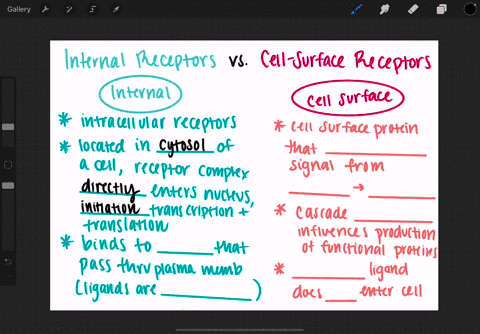 Gallery
Internal Receptors vs. Cell-Surface Receptors
Internal
* intracellular receptors
* located in cytosol of
a cell, receptor complex
directly enters nucleus,
initiation transcription +
translation
* binds to ______ that
pass thru plasma memb
(ligands are __________)
Cell Surface
* cell surface protein
that __________
signal from
______ → ______
* cascade ________
influences production
of functional proteins
* ________ ligand
does ____ enter cell